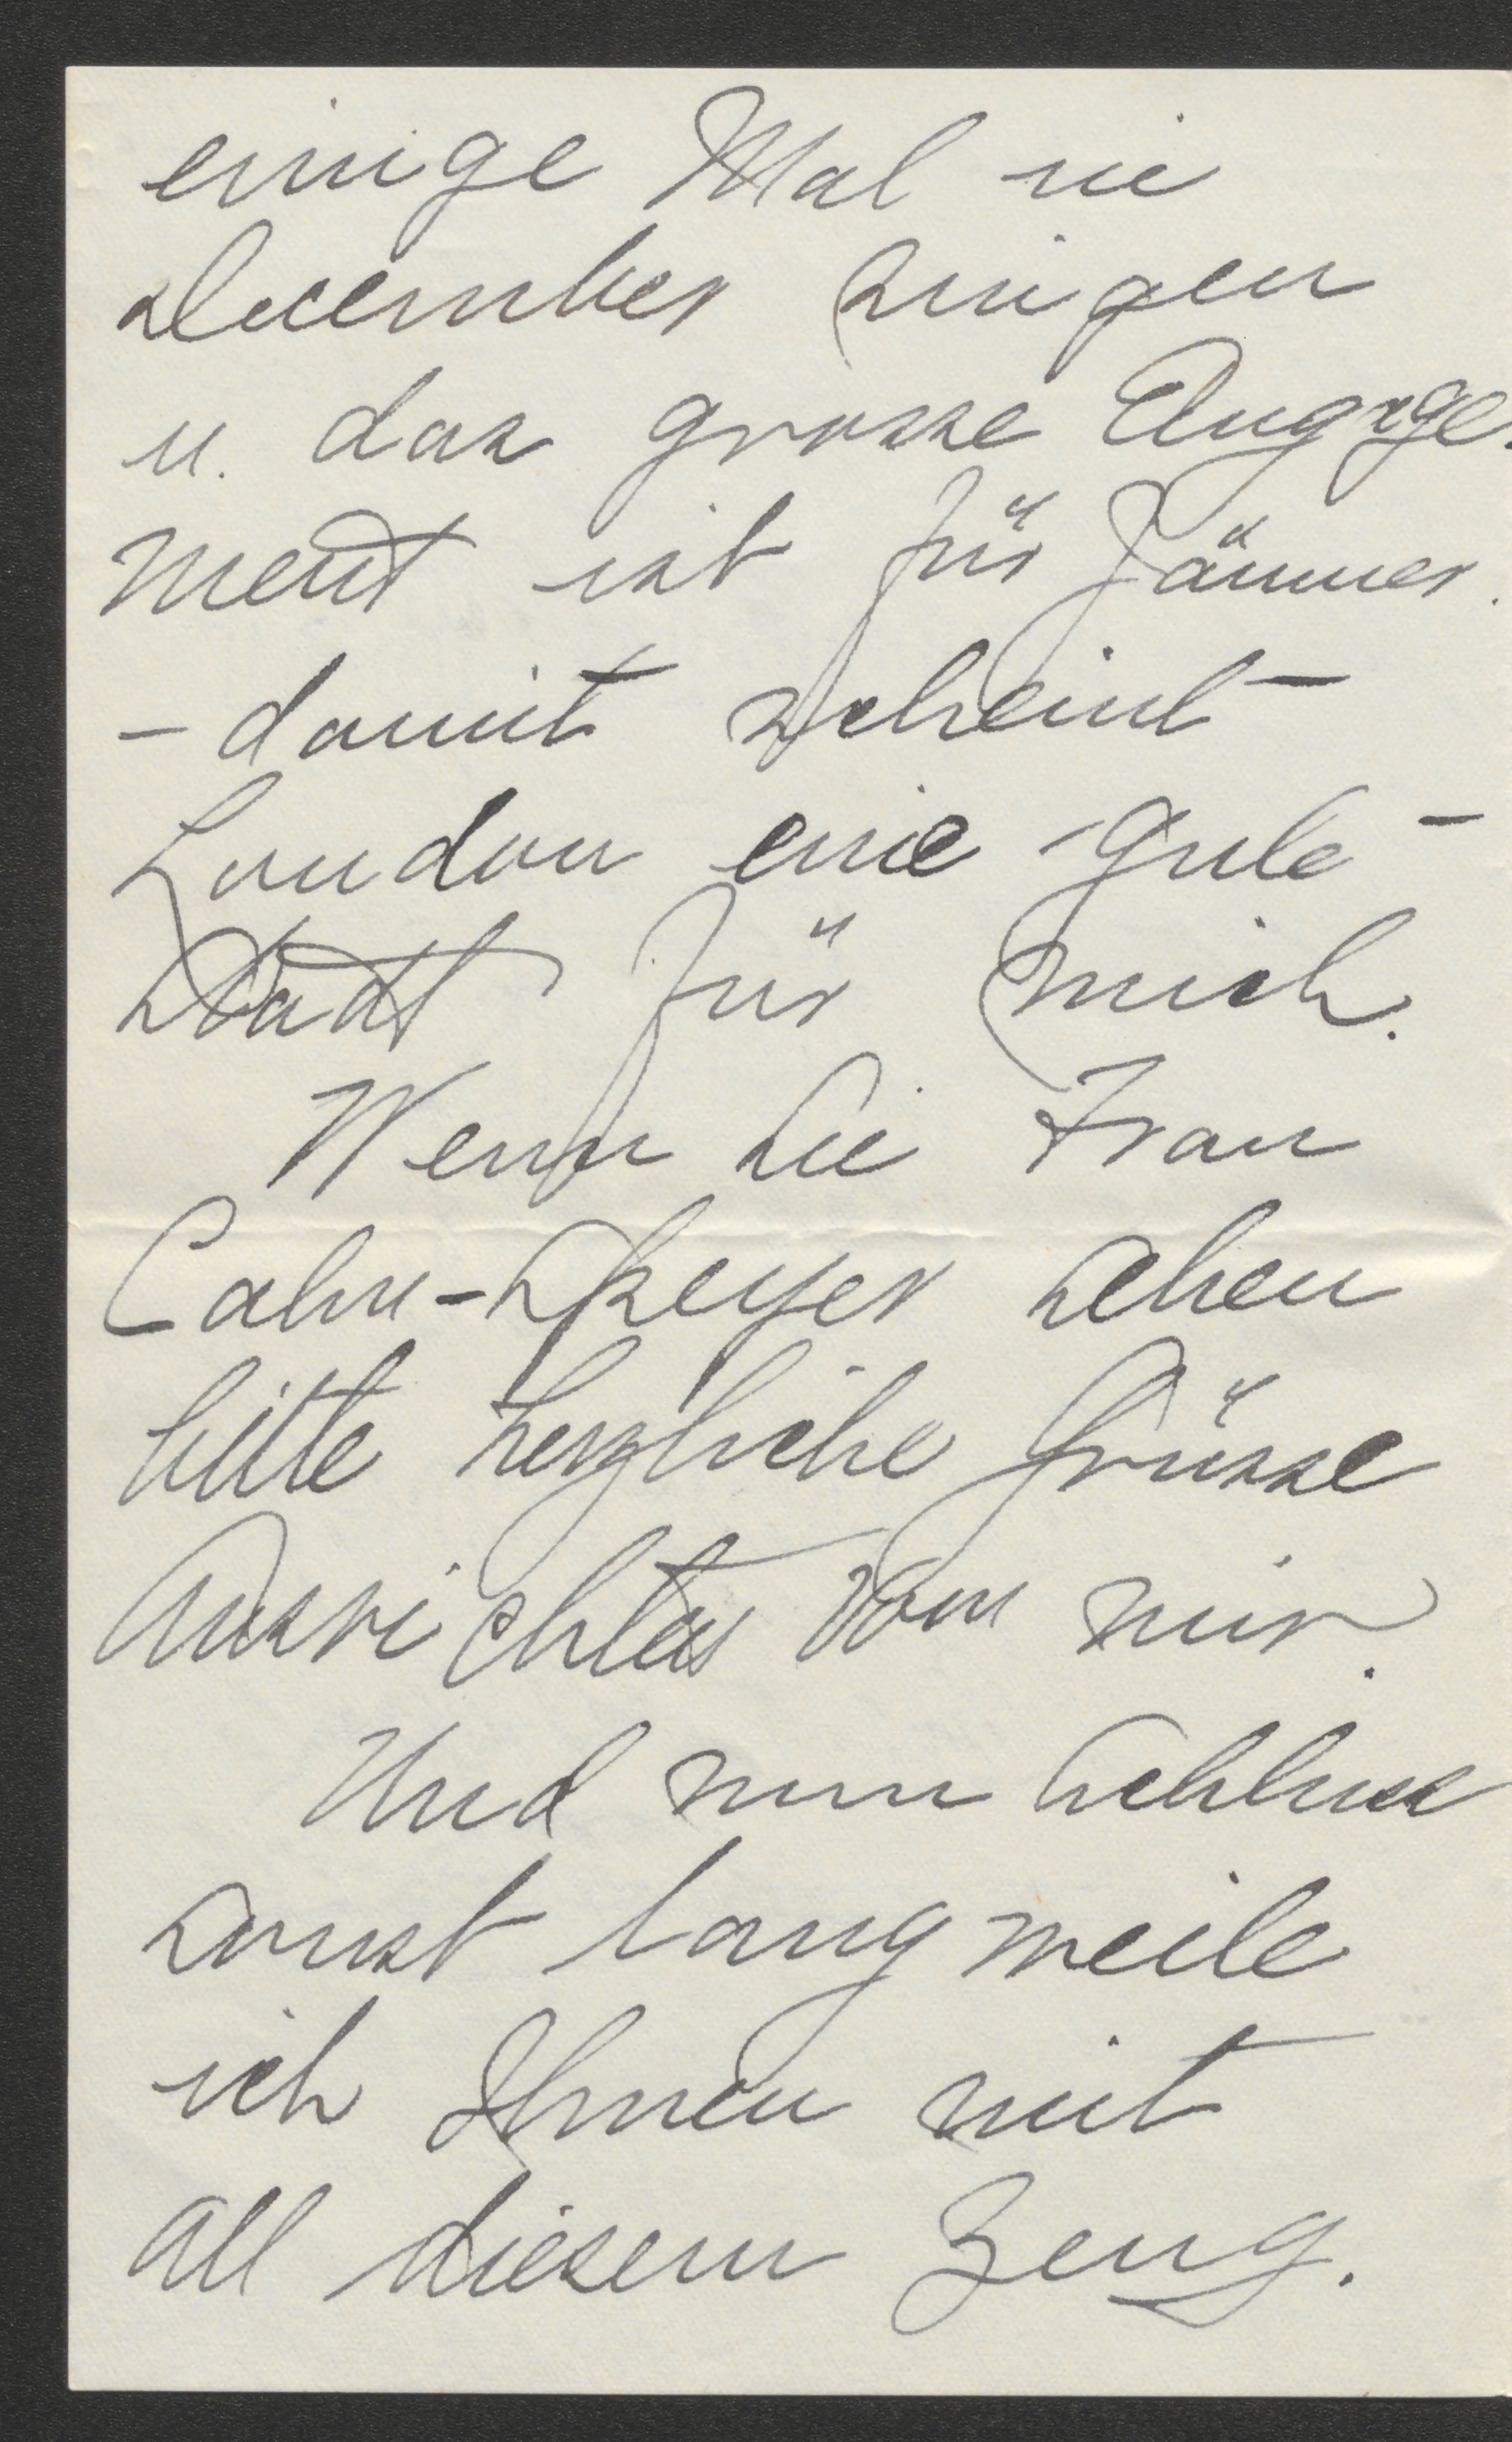 einige Mal in
December singen
u. das grosse Engage-
ment ist für Jänner.
– damit scheint –
London eine gute –
Stadt für mich.
Wenn Sie Frau
Cahn-Speyer sehen
bitte herzliche Grüsse
Ausrichten von mir.
Und nun Schluss
sonst langweile
ich Ihnen mit
all diesem Zeug.